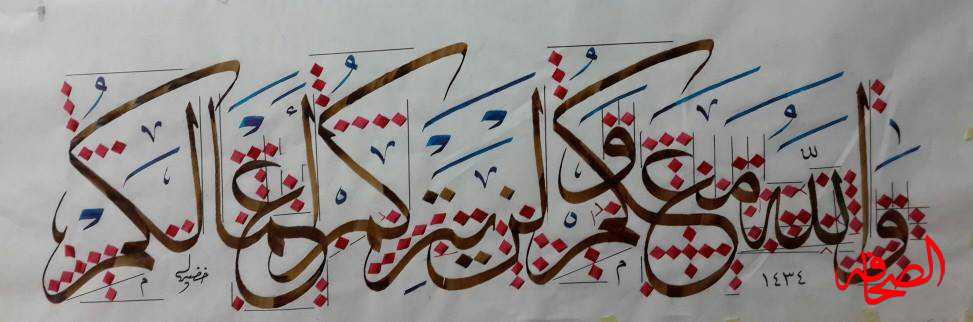 وَاللّٰهُ مَعَكُمْ وَلَنْ يَتِرَكُمْ أَعْمَالَكُمْ
١٤٣٤
الصحافة